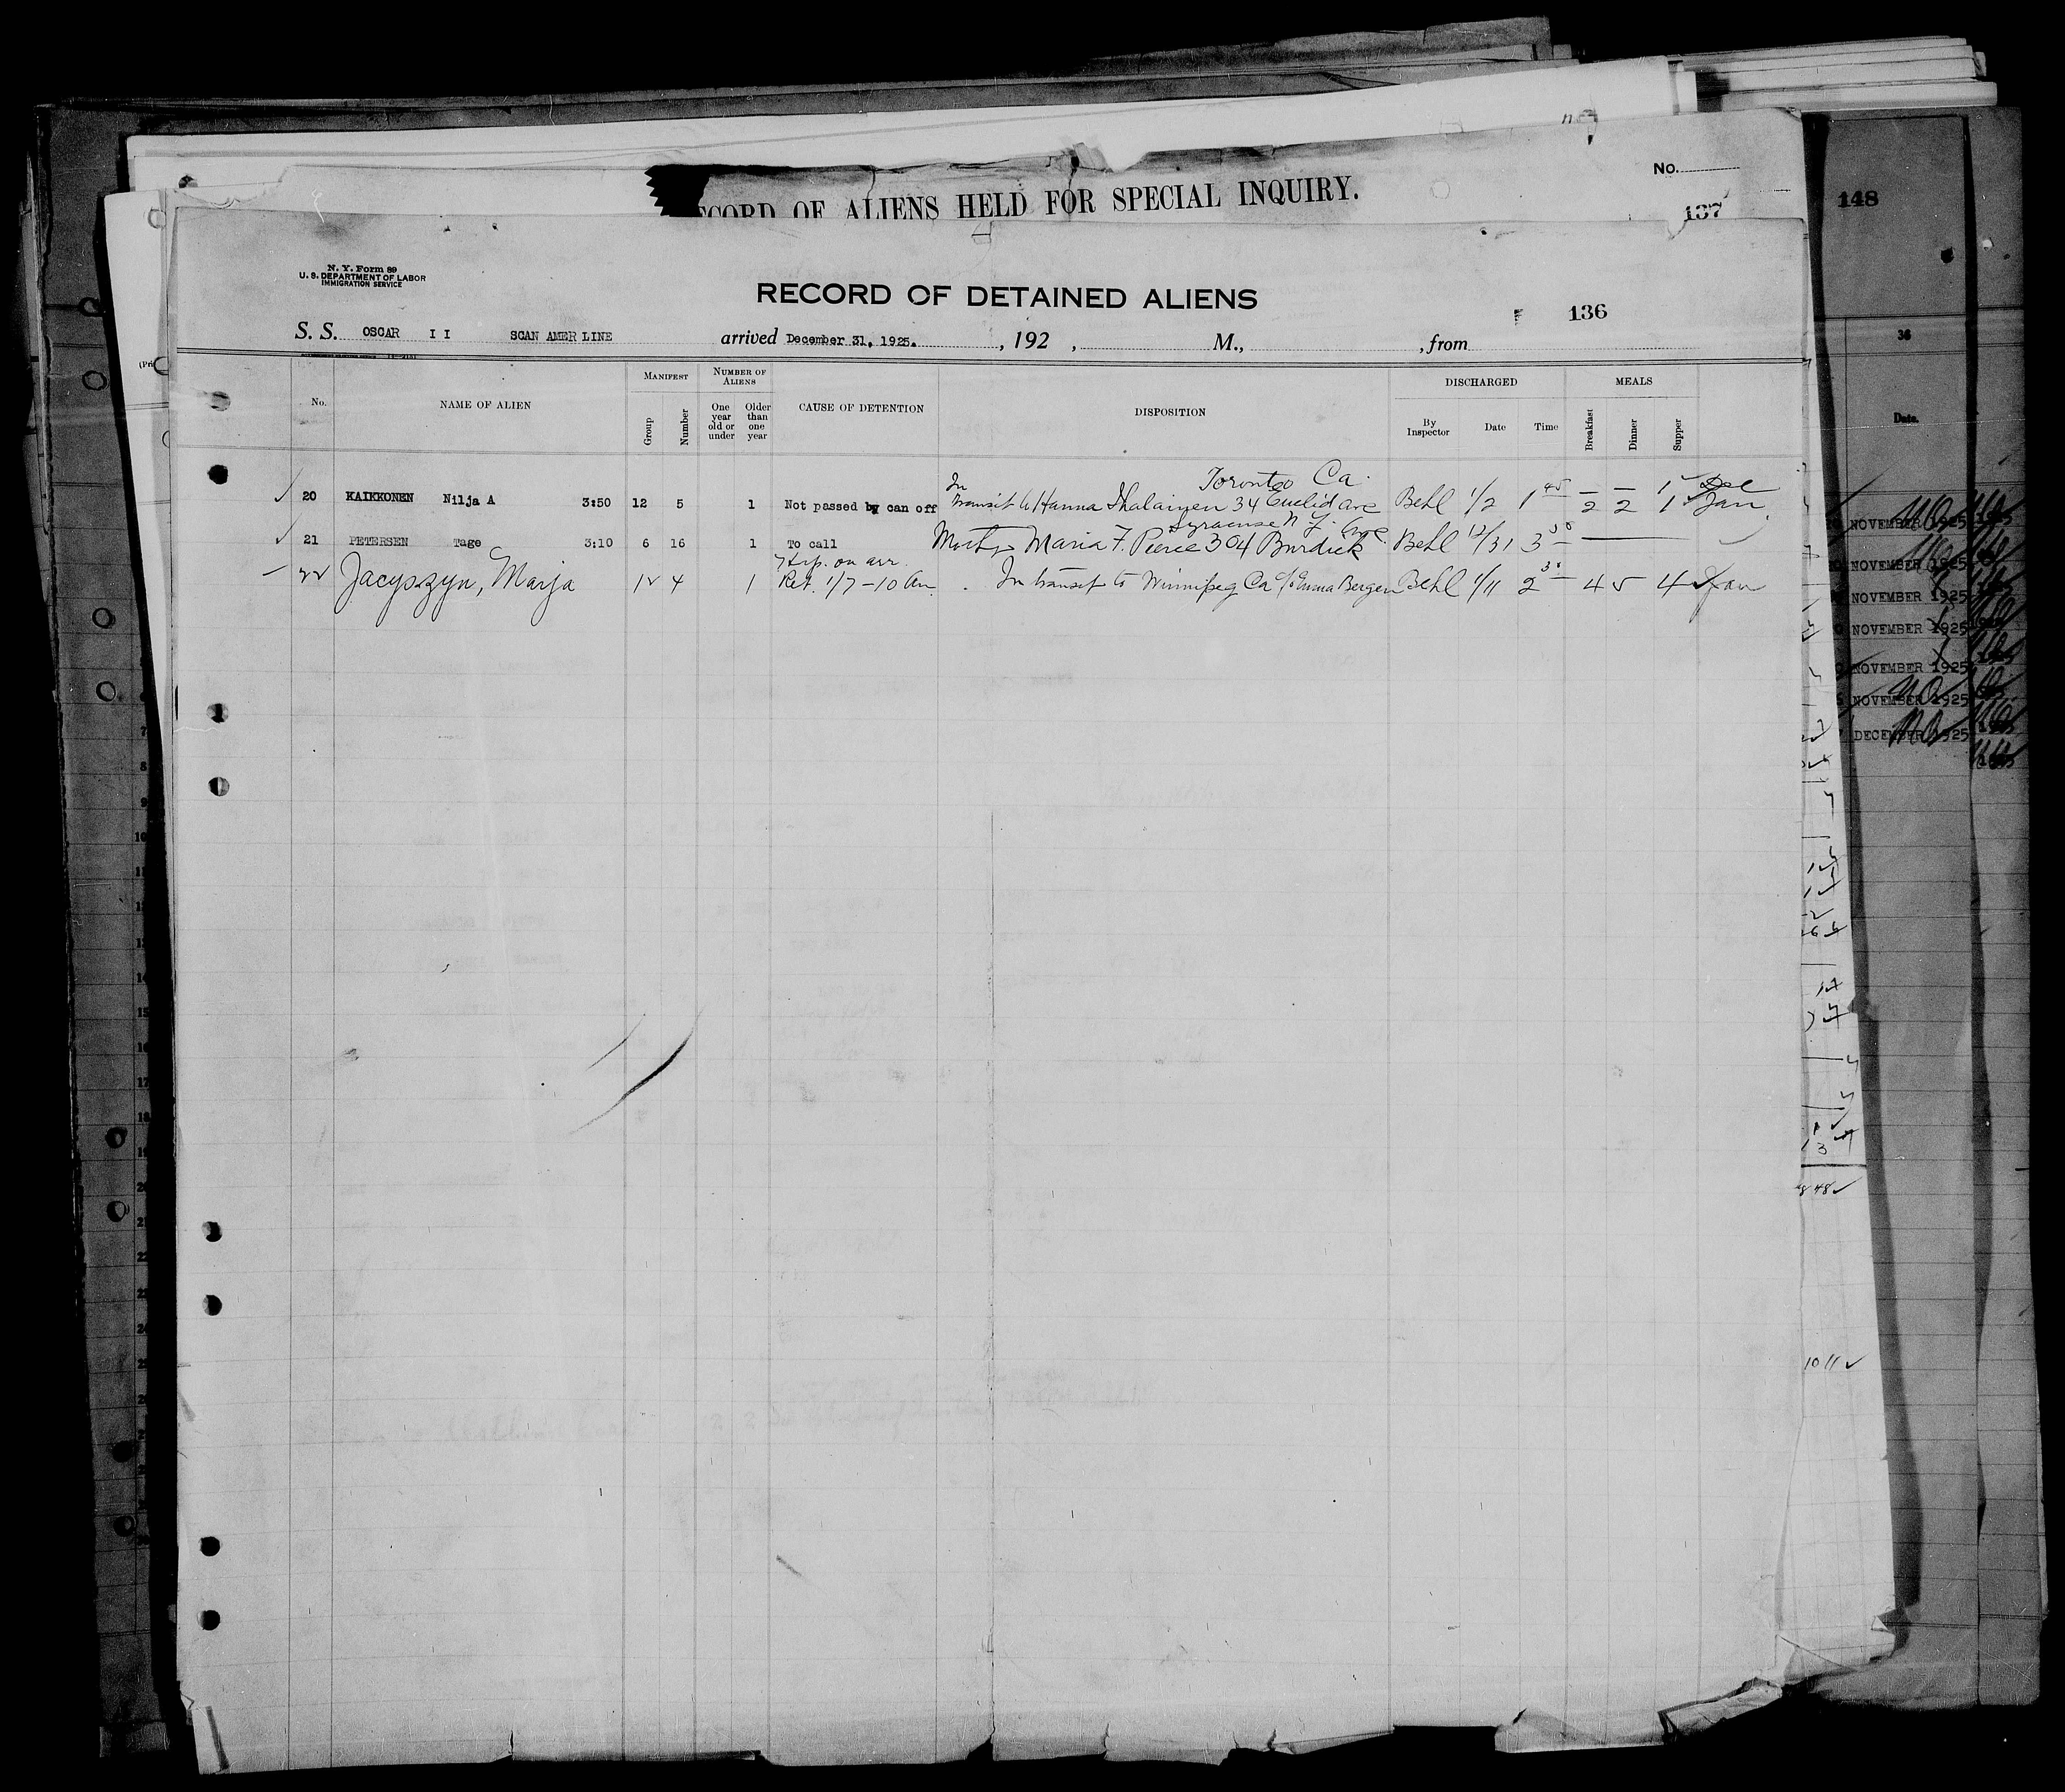 No.
ECORD OF ALIENS HELD FOR SPECIAL INQUIRY.
137
148
N. Y. Form 89
U. S. DEPARTMENT OF LABOR
IMMIGRATION SERVICE
RECORD OF DETAINED ALIENS
136
S. S. OSCAR II SCAN AMER LINE arrived December 31, 1925. , 192 , M., , from
36
(Pri
No. NAME OF ALIEN MANIFEST Group Number NUMBER OF ALIENS One year old or under Older than one year CAUSE OF DETENTION DISPOSITION DISCHARGED By Inspector Date Time MEALS Breakfast Dinner Supper
Date.
In Toronto Ca. 1 Dec
20 KAIKKONEN Nilja A 3:50 12 5 1 Not passed by can off transit to Hanna Ihalainen 34 Euclid ave Behl 1/2 1 45 2 2 1 Jan
Syracuse N.Y. Ave
21 PETERSEN Tage 3:10 6 16 1 To call Maria F. Pierce 304 Burdick Behl 12/31 3 30
22 Jacyszyn, Marja 12 4 1 Ret. 1/7 - 10 am In transit to Winnipeg Ca c/o Emma Bergen Behl 1/11 2 30 4 5 4 Jan
NOVEMBER 1925
NOVEMBER 1925
NOVEMBER 1925
NOVEMBER 1925
NOVEMBER 1925
NOVEMBER 1925
DECEMBER 1925
7
8
9
10
11
12
13
14
15
16
17
18
19
20
21
22
48
10 11